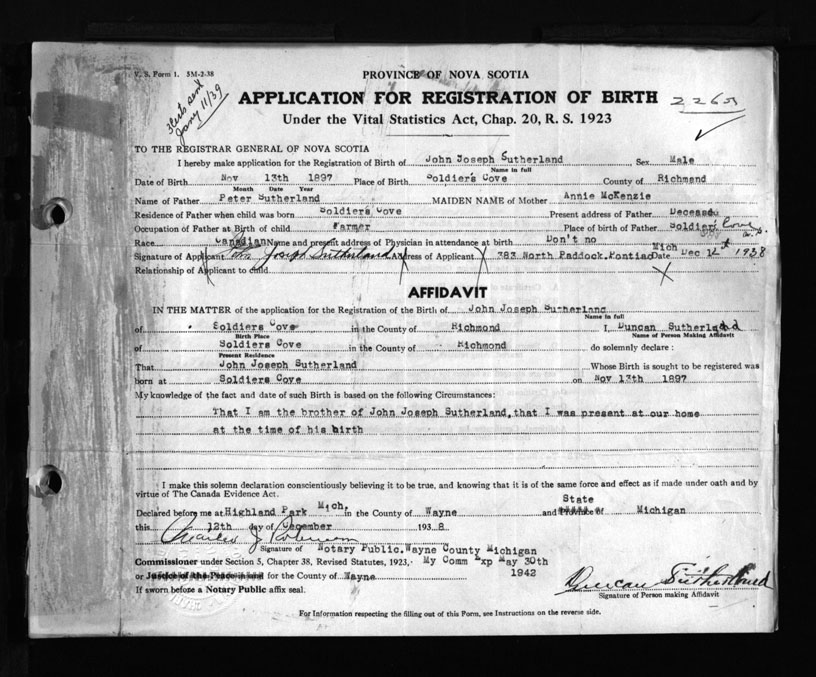 V. S. Form 1. 5M-2-38
PROVINCE OF NOVA SCOTIA
3 Certs sent
Jany 11/39
APPLICATION FOR REGISTRATION OF BIRTH
Under the Vital Statistics Act, Chap. 20, R. S. 1923
TO THE REGISTRAR GENERAL OF NOVA SCOTIA
I hereby make application for the Registration of Birth of John Joseph Sutherland Sex Male
Name in full
Date of Birth Nov 13th 1897 Place of Birth Soldier's Cove County of Richmond
Month Date Year
Name of Father Peter Sutherland MAIDEN NAME of Mother Annie McKenzie
Residence of Father when child was born Soldier's Cove Present address of Father Deceased
Occupation of Father at Birth of child Farmer Place of birth of Father Soldier's Cove
Race Canadian Name and present address of Physician in attendance at birth Don't no
Signature of Applicant John Joseph Sutherland Address of Applicant 383 North Paddock. Pontiac Mich Date Dec 12 1938
Relationship of Applicant to child
AFFIDAVIT
IN THE MATTER of the application for the Registration of the Birth of John Joseph Sutherland
Name in full
of Soldiers Cove in the County of Richmond I, Duncan Sutherland
Birth Place Name of Person Making Affidavit
of Soldiers Cove in the County of Richmond do solemnly declare :
Present Residence
That John Joseph Sutherland Whose Birth is sought to be registered was
born at Soldiers Cove on Nov 13th 1897
My knowledge of the fact and date of such Birth is based on the following Circumstances:
That I am the brother of John Joseph Sutherland, that I was present at our home
at the time of his birth
I make this solemn declaration conscientiously believing it to be true, and knowing that it is of the same force and effect as if made under oath and by
virtue of The Canada Evidence Act.
Declared before me at Highland Park Mich. in the County of Wayne and State Province of Michigan
this 12th day of December 1938
Charles J Robinson
Signature of Notary Public. Wayne County Michigan
Commissioner under Section 5, Chapter 38, Revised Statutes, 1923, My Comm Exp May 30th
or Justice of the Peace in and for the County of Wayne 1942
If sworn before a Notary Public affix seal.
Duncan Sutherland
Signature of Person making Affidavit
For Information respecting the filling out of this Form, see Instructions on the reverse side.